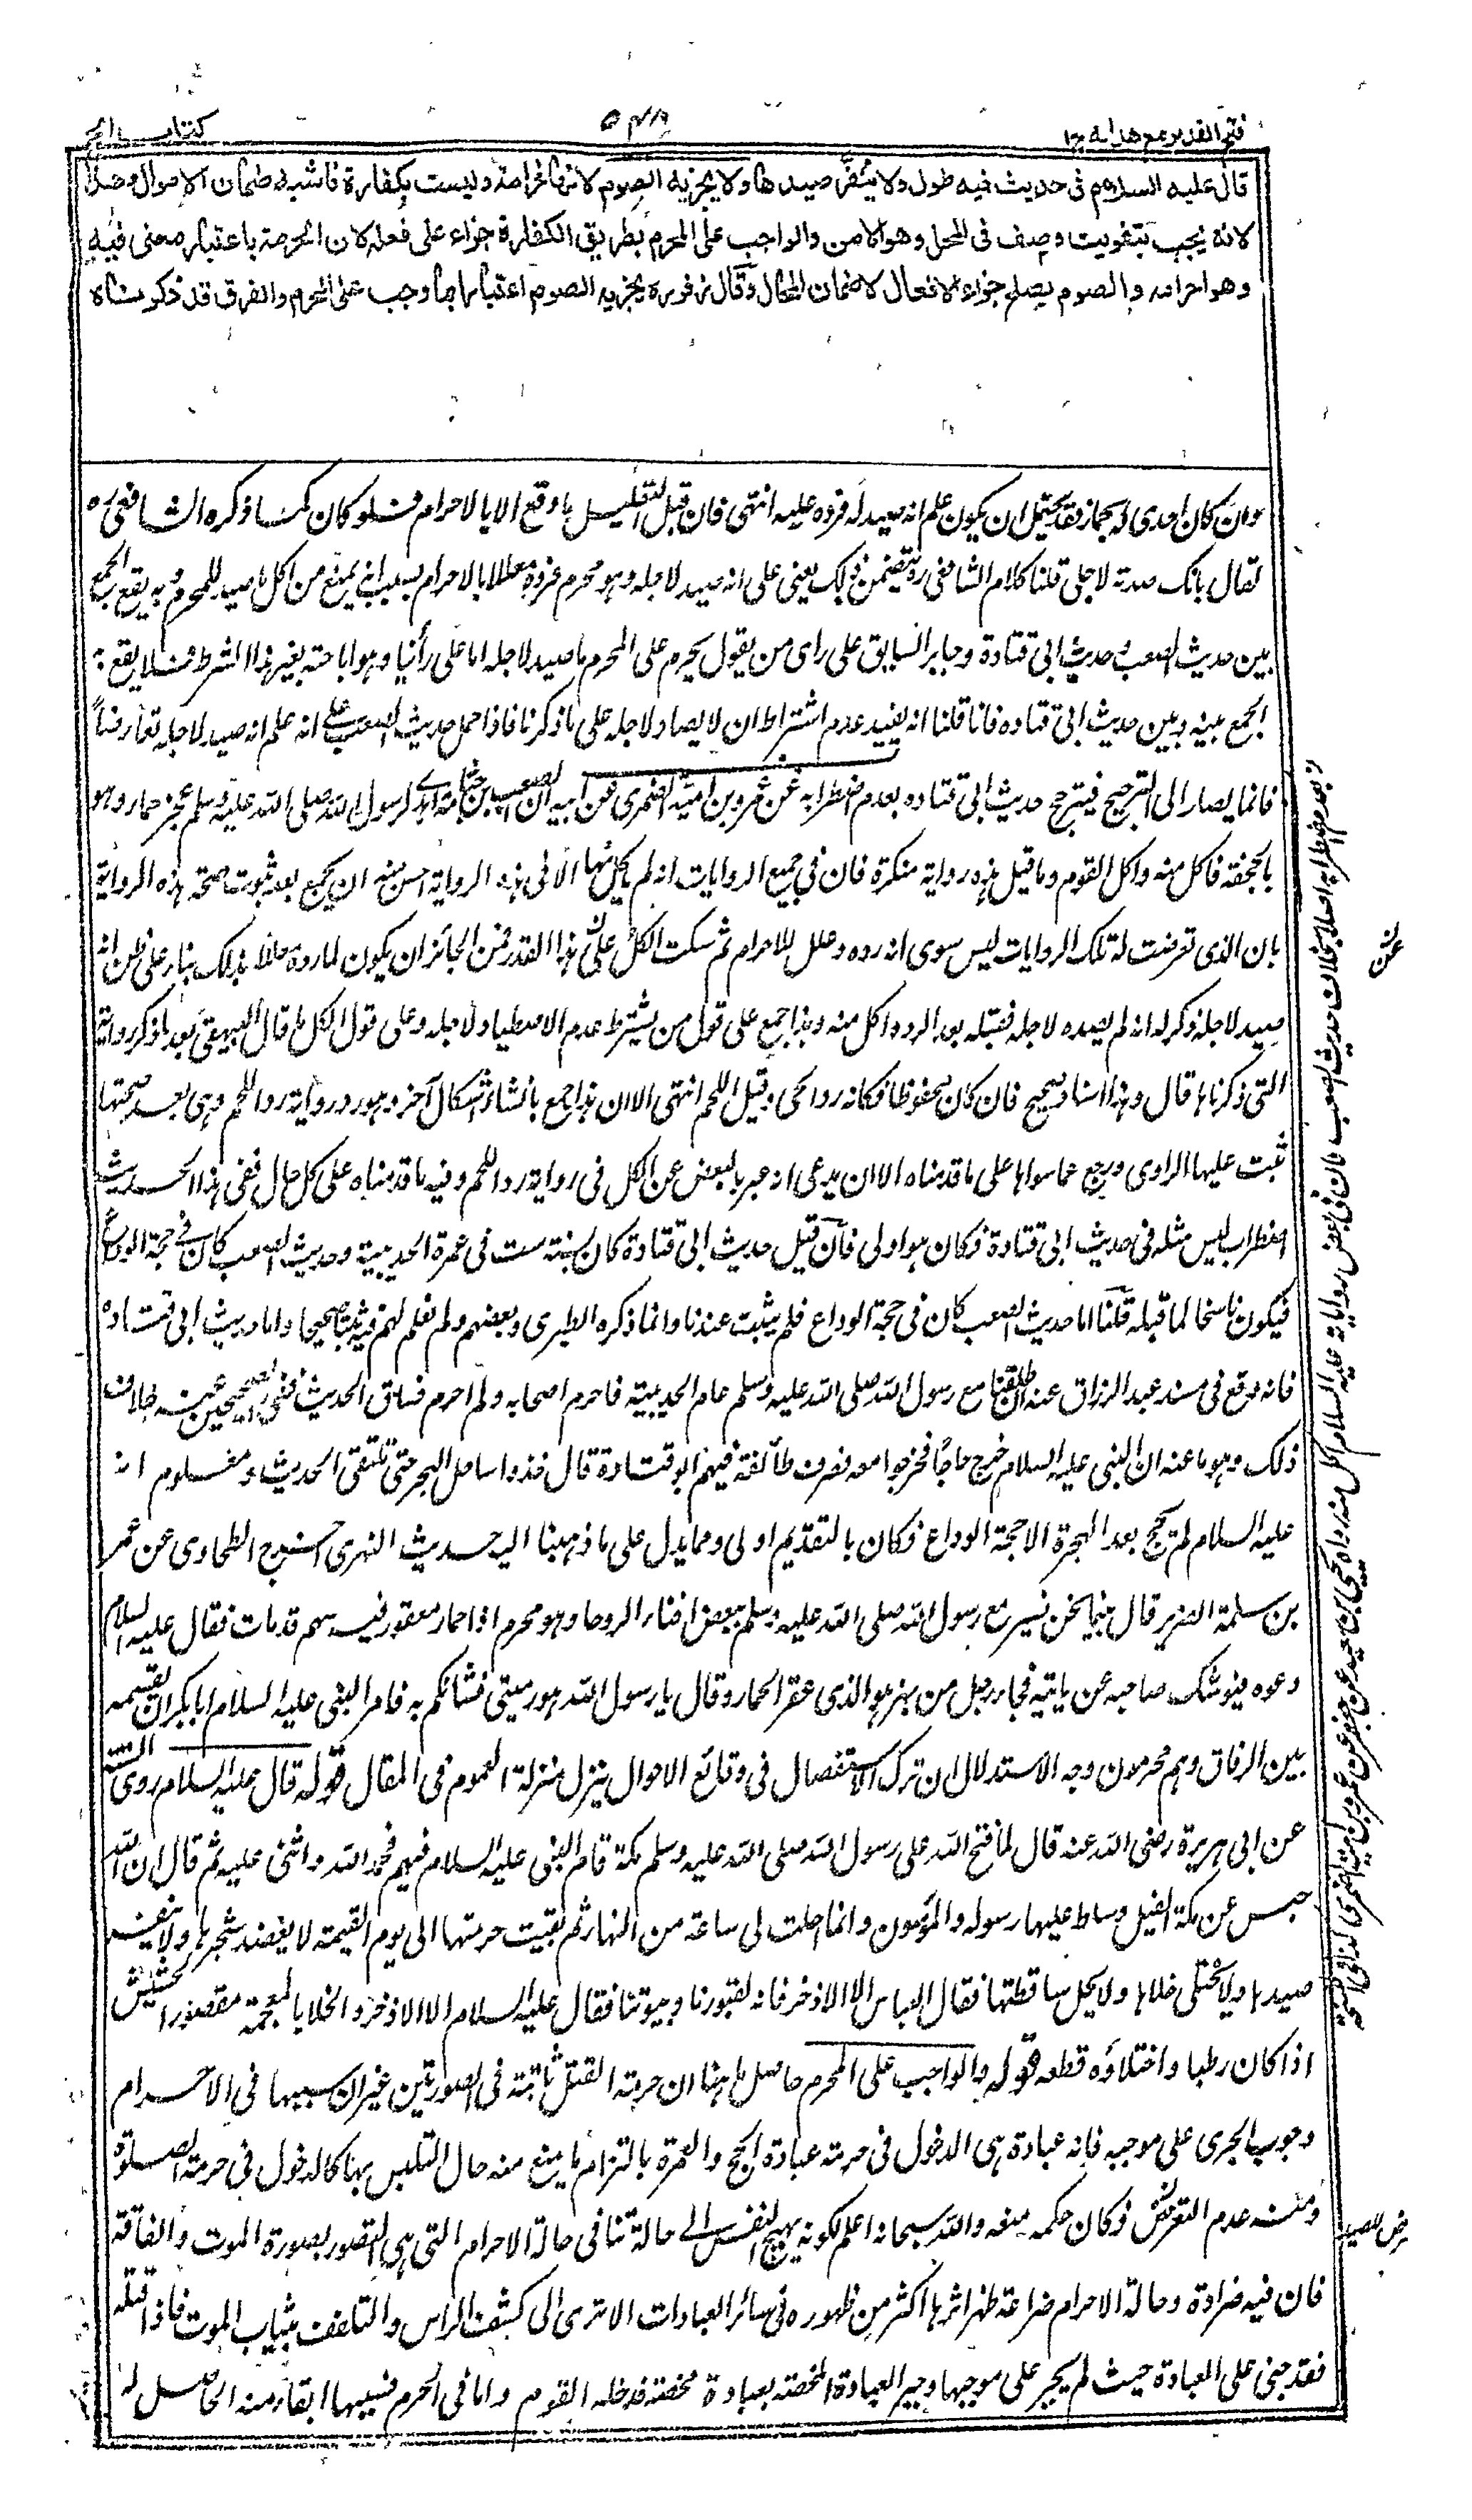 فتح القدير مع هدايه ج ١
كتاب الحج
قال عليه السلام فى حديث فيه طول ولا ينفر صيدها ولا يجزيه الصوم لانها غرامة وليست بكفارة فاشبه ضمان الاموال وهذا
لانه يجب بتفويت وصف فى المحل وهو الامن والواجب على المحرم بطريق الكفارة جزاء على فعله لان الحرمة باعتبار معنى فيه
وهو احرامه والصوم يصلح جزاء الافعال لا ضمان المحال وقال زفر ره يجزيه الصوم اعتبارا بما وجب على المحرم والفرق قد ذكرناه
وان كان اهدى له لحما فقد يحتمل ان يكون علم انه صيد له فرده عليه انتهى فان قبل التعليل ما وقع الا بالاحرام فلو كان كما ذكره الشافعى ره
لقال بانك صدته لاجلى قلنا كلام الشافعى ره يتضمن ذلك يعنى على انه صيد لاجله وهو محرم فرده معللا بالاحرام بسبب انه يمنع من اكل ما صيد للمحرم وبه يقع الجمع
بين حديث الصعب وحديث ابى قتادة وجابر السابق على راى من يقول يحرم على المحرم ما صيد لاجله اما على رأينا وهو اباحته بغير هذا الشرط فلا يقع
الجمع بينه وبين حديث ابى قتاده فانا قلنا انه يفيد عدم اشتراط ان لا يصاد لاجله على ما ذكرنا فاذا حمل حديث الصعب على انه علم انه صيد لاجله تعارضا
فانما يصار الى الترجيح فيترجح حديث ابى قتاده بعدم اضطرابه عن عمرو بن امية الضمرى عن ابيه ان الصعب بن جثامة اهدى لرسول الله صلى الله عليه وسلم عجز حمار وهو
بالجحفة فاكل منه واكل القوم وما قيل هذه رواية منكرة فان فى جميع الروايات انه لم ياكل منها الا فى هذه الرواية احسن منه ان يجمع بعد ثبوت صحة هذه الرواية
بان الذى تعرضت له تلك الروايات ليس سوى انه رده وعلل للاحرام ثم سكت الكل على هذا القدر فمن الجائز ان يكون لما رده معللا بذلك بناء على ظن انه
صيد لاجله ذكر له انه لم يصده لاجله فقبله بعد الرد واكل منه وهذا جمع على قول من يشترط عدم الاصطياد لاجله وعلى قول الكل ما قال البيهقى بعد ما ذكر رواية
التى ذكرناها قال وهذا اسناد صحيح فان كان محفوظا فكانه رد الحى وقبل اللحم انتهى الا ان هذا جمع بانشاء اشكال آخر وهو رد رواية رد اللحم وهى بعد صحتها
ثبت عليها الراوى ورجع عما سواها على ما قدمناه الا ان يدعى انه عبر بالبعض عن الكل فى رواية رد اللحم وفيه ما قدمناه على كل حال ففى هذا الحديث
اضطراب ليس مثله فى حديث ابى قتادة فكان هو اولى فان قيل حديث ابى قتادة كان سنة ست فى عمرة الحديبية وحديث الصعب كان فى حجة الوداع
فيكون ناسخا لما قبله قلنا اما حديث الصعب كان فى حجة الوداع فلم يثبت عندنا وانما ذكره الطبرى وبعضهم ولم نعلم لهم فيه ثبتا صحيحا واما حديث ابى قتاده
فانه وقع فى مسند عبد الرزاق عنه انطلقنا مع رسول الله صلى الله عليه وسلم عام الحديبية فاحرم اصحابه ولم احرم فساق الحديث ففى الصحيحين عنه خلاف
ذلك وهو ما عنه ان النبى عليه السلام خرج حاجا فخرجوا معه فصرف طائفة فيهم ابو قتادة قال خذوا ساحل البحر حتى نلتقى الحديث ومعلوم انه
عليه السلام لم يحج بعد الهجرة الا حجة الوداع فكان بالتقديم اولى ومما يدل على ما ذهبنا اليه حديث النهرى اخرج الطحاوى عن عمر
بن سلمة الضمرى قال بينما نحن نسير مع رسول الله صلى الله عليه وسلم ببعض افناء الروحا وهو محرم اذا حمار معقور فيه سهم قد مات فقال عليه السلام
دعوه فيوشك صاحبه عن ياتيه فجاء رجل من بهز هو الذى عقر الحمار وقال يا رسول الله هو رميتى فشانكم به فامر النبى عليه السلام ابا بكر ان يقسمه
بين الرفاق وهم محرمون وجه الاستدلال ان ترك الاستفصال فى وقائع الاحوال ينزل منزلة العموم فى المقال قوله قال عليه السلام روى الستة
عن ابى هريرة رضى الله عنه قال لما فتح الله على رسول الله صلى الله عليه وسلم مكة قام النبى عليه السلام فيهم فحمد الله واثنى عليه ثم قال ان الله
حبس عن مكة الفيل وسلط عليها رسوله والمؤمنون وانما احلت لى ساعة من النهار ثم بقيت حرمتها الى يوم القيمة لا يعضد شجرها ولا ينفر
صيدها ولا يختلى خلاها ولا يحل ساقطتها فقال العباس الا الاذخر فانه لقبورنا وبيوتنا فقال عليه السلام الا الاذخر والخلا بالمعجمة مقصورا الحشيش
اذا كان رطبا واختلاؤه قطعه قوله والواجب على المحرم حاصل ما هنا ان حرمة القتل ثابتة فى الصورتين غير ان سببها فى الاحرام
وجوب الجرى على موجبه فانه عبادة هى الدخول فى حرمة عبادة الحج والعمرة بالتزام ما يمنع منه حال التلبس بها كالدخول فى حرمة الصلوة
ومنه عدم التعرض فكان حكمه منعه والله سبحانه اعلم لكونه يهيج النفس الى حالة تنافى حالة الاحرام التى هى التصور بصورة الموت والفاقة
فان فيه ضراوة وحالة الاحرام ضراعة ظهر اثرها اكثر من ظهوره فى سائر العبادات الا ترى الى كشف الراس والتلفف بثياب الموت فاذا قتله
فقد جنى على العبادة حيث لم يجر على موجبها وجبر العبادة المحضة بعبادة محضة فدخله الصوم واما فى الحرم فسببها ابقاء منه الحاصل له
عن